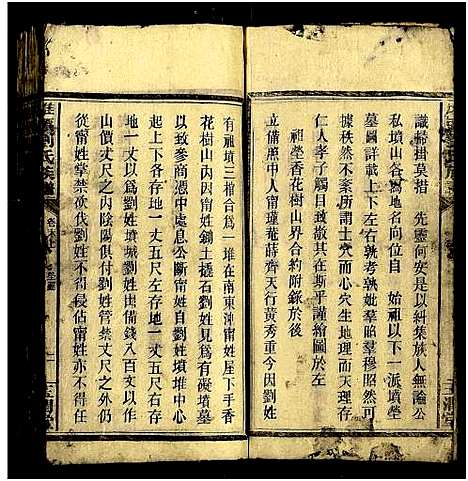 識歸掛莫措　先靈何安是以糾集族人無論公
私墳山各寫地名向位自　始祖以下一派墳塋
墓圖詳載上下左右孰考孰妣羣昭羣穆昭然可
據秩然不紊所謂士究而心穴生地理而天理存
仁人孝子觸目致敬其在斯乎謹繪圖於左
祖塋香花樹山界合約附錄於後
立僅令四人中甯瑾菴蔣齊天行黃秀重今因劉姓
有祖墳三棺合爲一堆在南東沖甯姓屋下手香
花樹山內因甯姓鋤土撬石劉姓見爲有礙墳墓
以致參商憑中處息公斷甯姓自劉姓墳堆中心
起上下各存地一丈五尺左存地一丈五尺右存
地一丈以爲劉姓墳城劉姓出備錢八百文以作
山價丈尺之內陰陽俱付劉姓管禁丈尺之外仍
從甯姓掌禁砍伐劉姓不得侵佔甯姓亦不得任
劉氏族譜